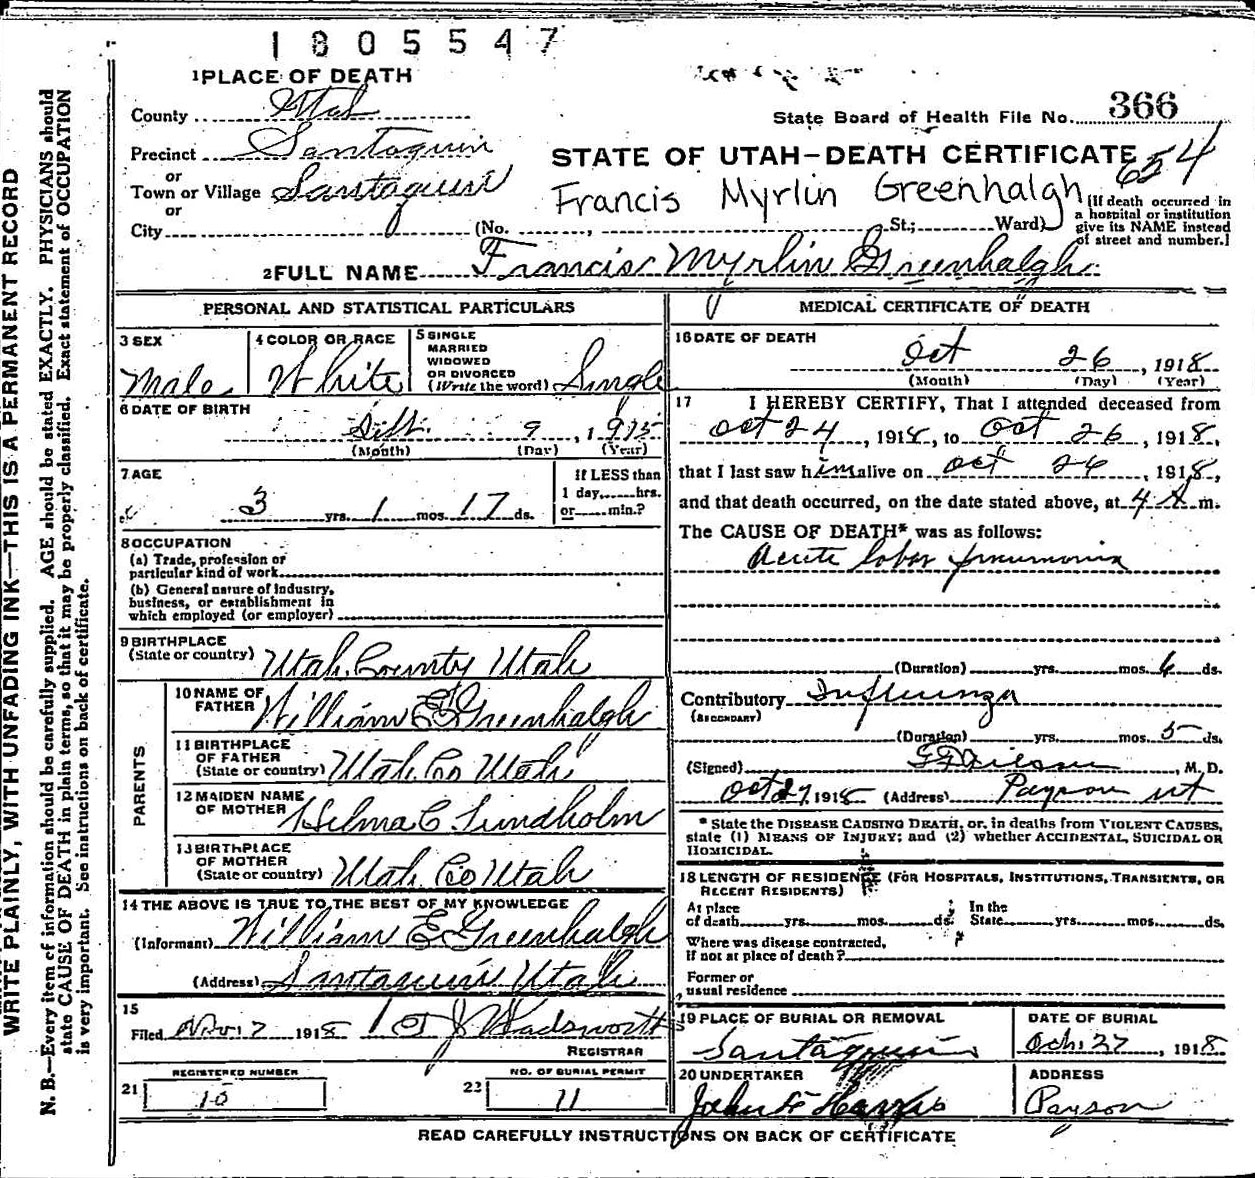 1805547
1 PLACE OF DEATH
County Utah
State Board of Health File No. 366
Precinct Santaquin
or
STATE OF UTAH—DEATH CERTIFICATE
654
Town or Village Santaquin
Francis Myrlin Greenhalgh
or
City (No. , St.; Ward)
[If death occurred in
a hospital or institution
give its NAME instead
of street and number.]
2 FULL NAME Francis Myrlin Greenhalgh
PERSONAL AND STATISTICAL PARTICULARS
3 SEX
Male
4 COLOR OR RACE
White
5 SINGLE
MARRIED
WIDOWED
OR DIVORCED
(Write the word) Single
6 DATE OF BIRTH
Sept. 9, 1915
(Month) (Day) (Year)
7 AGE
3 yrs. 1 mos. 17 ds.
If LESS than
1 day, hrs.
or min.?
8 OCCUPATION
(a) Trade, profession or
particular kind of work
(b) General nature of industry,
business, or establishment in
which employed (or employer)
9 BIRTHPLACE
(State or country) Utah County Utah
PARENTS
10 NAME OF
FATHER William E Greenhalgh
11 BIRTHPLACE
OF FATHER
(State or country) Utah Co Utah
12 MAIDEN NAME
OF MOTHER Hilma C. Lundholm
13 BIRTHPLACE
OF MOTHER
(State or country) Utah Co Utah
14 THE ABOVE IS TRUE TO THE BEST OF MY KNOWLEDGE
(Informant) William E Greenhalgh
(Address) Santaquin Utah
15
Filed Nov 2 1918 Wadsworth
REGISTRAR
REGISTERED NUMBER
21 15
NO. OF BURIAL PERMIT
22 11
MEDICAL CERTIFICATE OF DEATH
16 DATE OF DEATH
Oct 26, 1918
(Month) (Day) (Year)
17 I HEREBY CERTIFY, That I attended deceased from
Oct 24, 1918, to Oct 26, 1918,
that I last saw him alive on Oct 26, 1918,
and that death occurred, on the date stated above, at 4 A m.
The CAUSE OF DEATH* was as follows:
Acute lobar pneumonia
(Duration) yrs. mos. 6 ds.
Contributory Influenza
(SECONDARY)
(Duration) yrs. mos. 5 ds.
(Signed) , M. D.
Oct 27, 1918 (Address) Payson Ut
* State the DISEASE CAUSING DEATH, or, in deaths from VIOLENT CAUSES,
state (1) MEANS OF INJURY; and (2) whether ACCIDENTAL, SUICIDAL OR
HOMICIDAL.
18 LENGTH OF RESIDENCE (FOR HOSPITALS, INSTITUTIONS, TRANSIENTS, OR
RECENT RESIDENTS)
At place
of death yrs. mos. ds.
In the
State yrs. mos. ds.
Where was disease contracted,
If not at place of death?
Former or
usual residence
19 PLACE OF BURIAL OR REMOVAL
Santaquin
DATE OF BURIAL
Oct. 27, 1918
20 UNDERTAKER
John F Harris
ADDRESS
Payson
READ CAREFULLY INSTRUCTIONS ON BACK OF CERTIFICATE
WRITE PLAINLY, WITH UNFADING INK—THIS IS A PERMANENT RECORD
N. B.—Every item of information should be carefully supplied. AGE should be stated EXACTLY. PHYSICIANS should
state CAUSE OF DEATH in plain terms, so that it may be properly classified. Exact statement of OCCUPATION
is very important. See instructions on back of certificate.